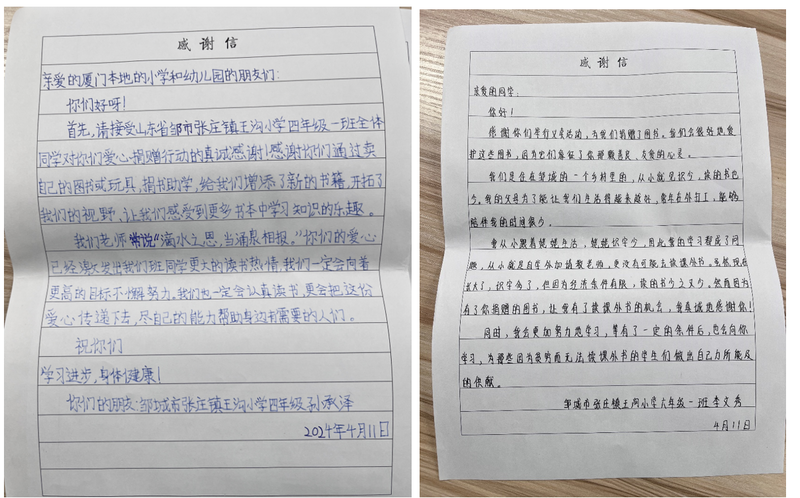 感谢信
亲爱的厦门本地的小学和幼儿园的朋友们:
你们好呀!
首先,请接受山东省邹市张庄镇王沟小学四年级一班全体
同学对你们爱心捐赠行动的真诚感谢!感谢你们通过卖
自己的图书或玩具,捐书助学,给我们增添了新的书籍,开拓了
我们的视野,让我们感受到更多书本中学习知识的乐趣。
我们老师常说"滴水之恩,当涌泉相报。"你们的爱心
已经激发出我们班同学更大的读书热情,我们一定会向着
更高的目标不懈努力。我们也一定会认真读书,更会把这份
爱心传递下去,尽自己的能力帮助身边有需要的人们。
祝你们
学习进步,身体健康!
你们的朋友:邹城市张庄镇王沟小学四年级孙承泽
2024年4月11日
感谢信
亲爱的同学:
你好!
感谢你们举行义卖活动,为我们捐赠了图书。我们会很好地爱
护这些图书,因为它们象征了你那颗善良、友爱的心灵。
我们是住在邹城的一个乡村里的,从小就见识少,读的书也
少。我的父母为了能让我们生活得越来越好,常年在外打工,能够
陪伴我的时间很少。
我从小跟着姥姥生活,姥姥识字少,因此我的学习都成了问
题,从小就是自学外加请教老师,更没有可能去读课外书。虽然现在
长大了,识字多了,但因为经济条件有限,读的书少之又少。然而因为
有了你捐赠的图书,让我有了读课外书的机会,我真诚地感谢你!
同时,我会更加努力地学习,等有了一定的条件后,也会向你
学习,为那些因为贫穷而无法读课外书的学生们做出自己力所能及
的保献。
邹城市张庄镇王沟小学六年级一班李文秀
4月11日